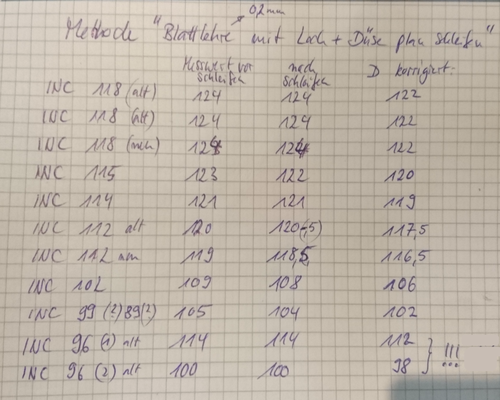 0,2 mm
Methode "Blattlehre mit Loch + Düse plan schleifen"
Messwert vor schleifen nach schleifen D korrigiert:
INC 118 (alt) 124 124 122
INC 118 (alt) 124 124 122
INC 118 (neu) 124 124 122
INC 115 123 122 120
INC 114 121 121 119
INC 112 alt 120 120(-,5) 117,5
INC 112 neu 119 118,5 116,5
INC 102 109 108 106
INC 99 (2) 89(2) 105 104 102
INC 96 (1) alt 114 114 112
INC 96 (2) alt 100 100 98 } !!!